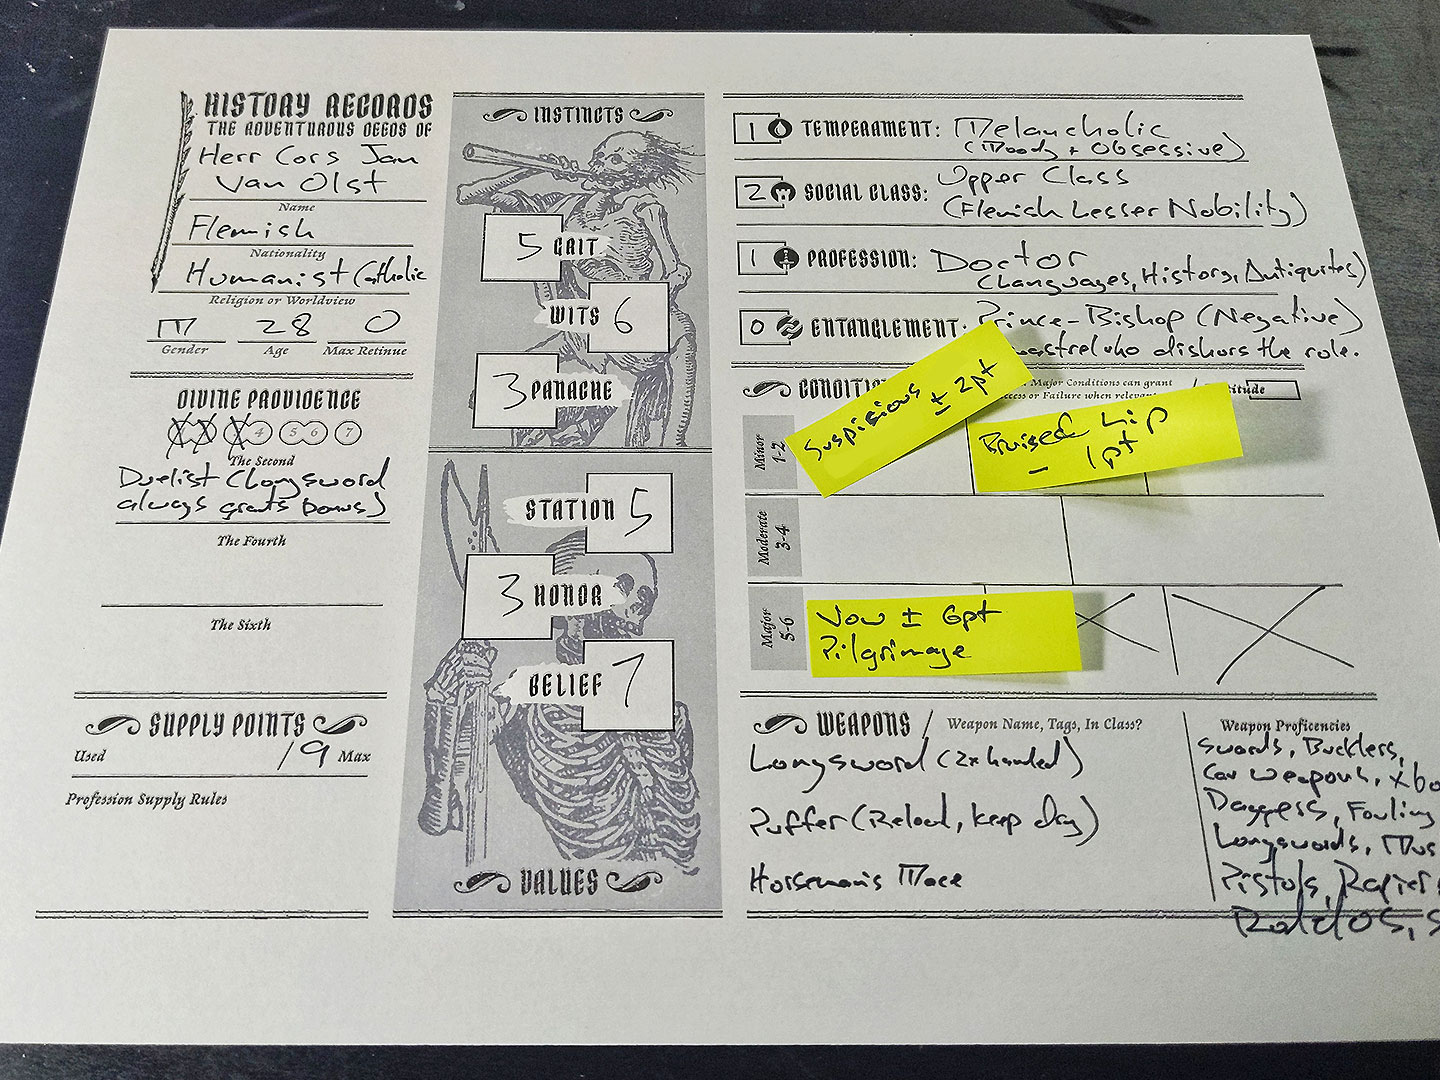 HISTORY RECORDS
THE ADVENTUROUS DEEDS OF
Herr Cors Jan
Van Olst
Name
Flemish
Nationality
Humanist Catholic
Religion or Worldview
M 28 0
Gender Age Max Retinue
DIVINE PROVIDENCE
4 5 6 7
The Second
Duelist (Longsword
always grants bonus)
The Fourth
The Sixth
SUPPLY POINTS
Used /9 Max
Profession Supply Rules
INSTINCTS
5 GAIT
WITS 6
3 PANACHE
STATION 5
3 HONOR
BELIEF 7
VALUES
1 TEMPERAMENT: Melancholic
(Moody + Obsessive)
2 SOCIAL CLASS: Upper Class
(Flemish Lesser Nobility)
1 PROFESSION: Doctor
(Languages, History, Antiquites)
0 ENTANGLEMENT: Prince-Bishop (Negative)
who dishors the role.
Major Conditions can grant
or Failure when
Suspicious ± 2pt
Bruised Hip
- 1pt
Minor
1-2
Moderate
3-4
Major
5-6
Vow ± 6pt
Pilgrimage
WEAPONS / Weapon Name, Tags, In Class?
Longsword (2x handed)
Puffer (Reload, keep dry)
Horseman's Mace
Weapon Proficencies
Swords, Bucklers,
Cav Weapons,
Daggers, Fouling
Longswords,
Pistols,